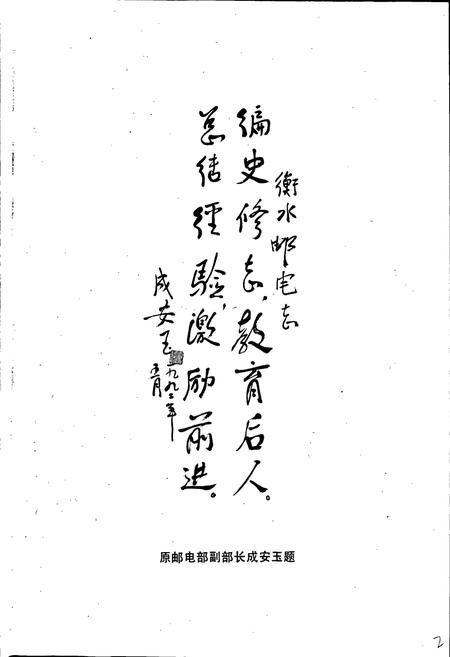 衡水邮电志
编史修志，教育后人。
总结经验，激励前进。
成安玉
一九九二年
五月
原邮电部副部长成安玉题
2